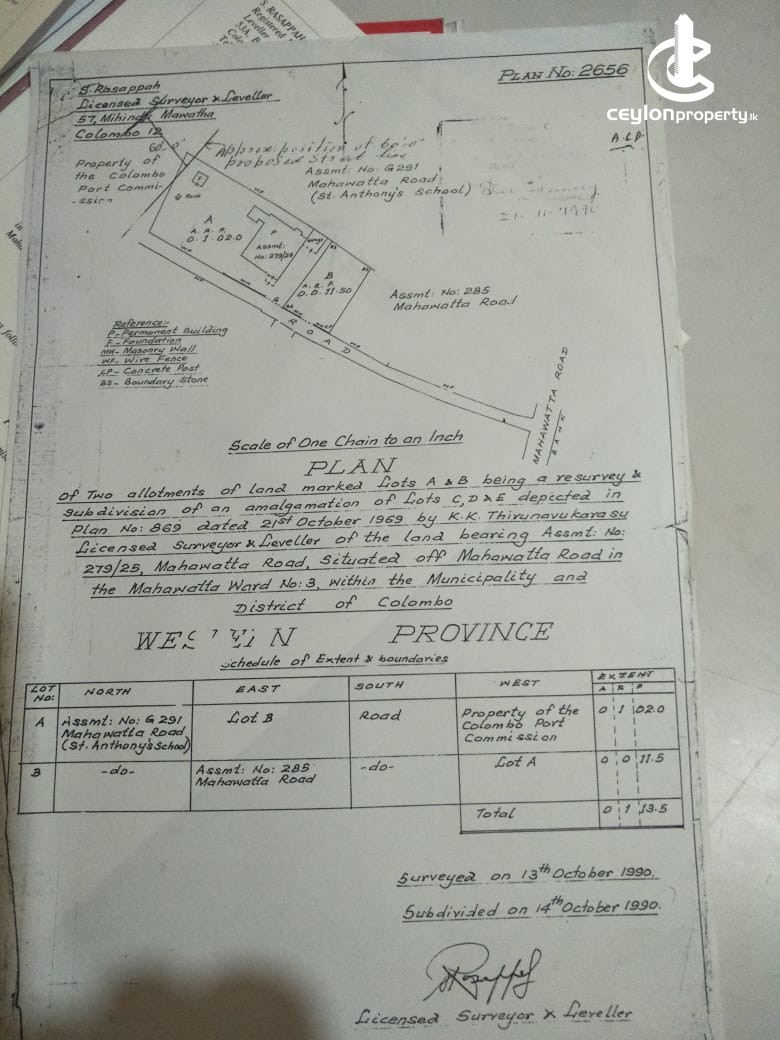 S. RASAPPAH
Registered
Leveller
53A, B
Colo
Te
CEYLONPROPERTY.lk
PLAN No: 2656
S. Rasappah
Licensed Surveyor & Leveller
57, Mihindu Mawatha
Colombo 12
A.L.P
60.0'
Approx: position of 60'.0"
proposed Street line
Property of
the Colombo
Port Commi-
-ssion
Assmt: No: G291
Mahawatta Road
(St. Anthony's School)
21.11.1990
F
Tank
A
A. R. P.
0. 1. 02.0
P
Assmt:
No: 279/25
B
A. R. P.
0. 0. 11.50
Assmt: No: 285
Mahawatta Road
ROAD
MAHAWATTA ROAD
BANK
Reference:-
P - Permanent Building
F - Foundation
MW - Masonry Wall
WF - Wire Fence
CP - Concrete Post
BS - Boundary Stone
Scale of One Chain to an Inch
PLAN
of Two allotments of land marked Lots A & B being a resurvey &
subdivision of an amalgamation of Lots C, D & E depicted in
Plan No: 869 dated 21st October 1969 by K.K. Thirunavukarasu
Licensed Surveyor & Leveller of the land bearing Assmt: No:
279/25, Mahawatta Road, Situated off Mahawatta Road in
the Mahawatta Ward No: 3, within the Municipality and
District of Colombo
WESTERN PROVINCE
Schedule of Extent & boundaries
LOT No: NORTH EAST SOUTH WEST EXTENT
A R P
A Assmt: No: G 291 Lot B Road Property of the 0 1 02.0
Mahawatta Road Colombo Port
(St. Anthony's School) Commission
B -do- Assmt: No: 285 -do- Lot A 0 0 11.5
Mahawatta Road
Total 0 1 13.5
Surveyed on 13th October 1990.
Subdivided on 14th October 1990.
Licensed Surveyor & Leveller